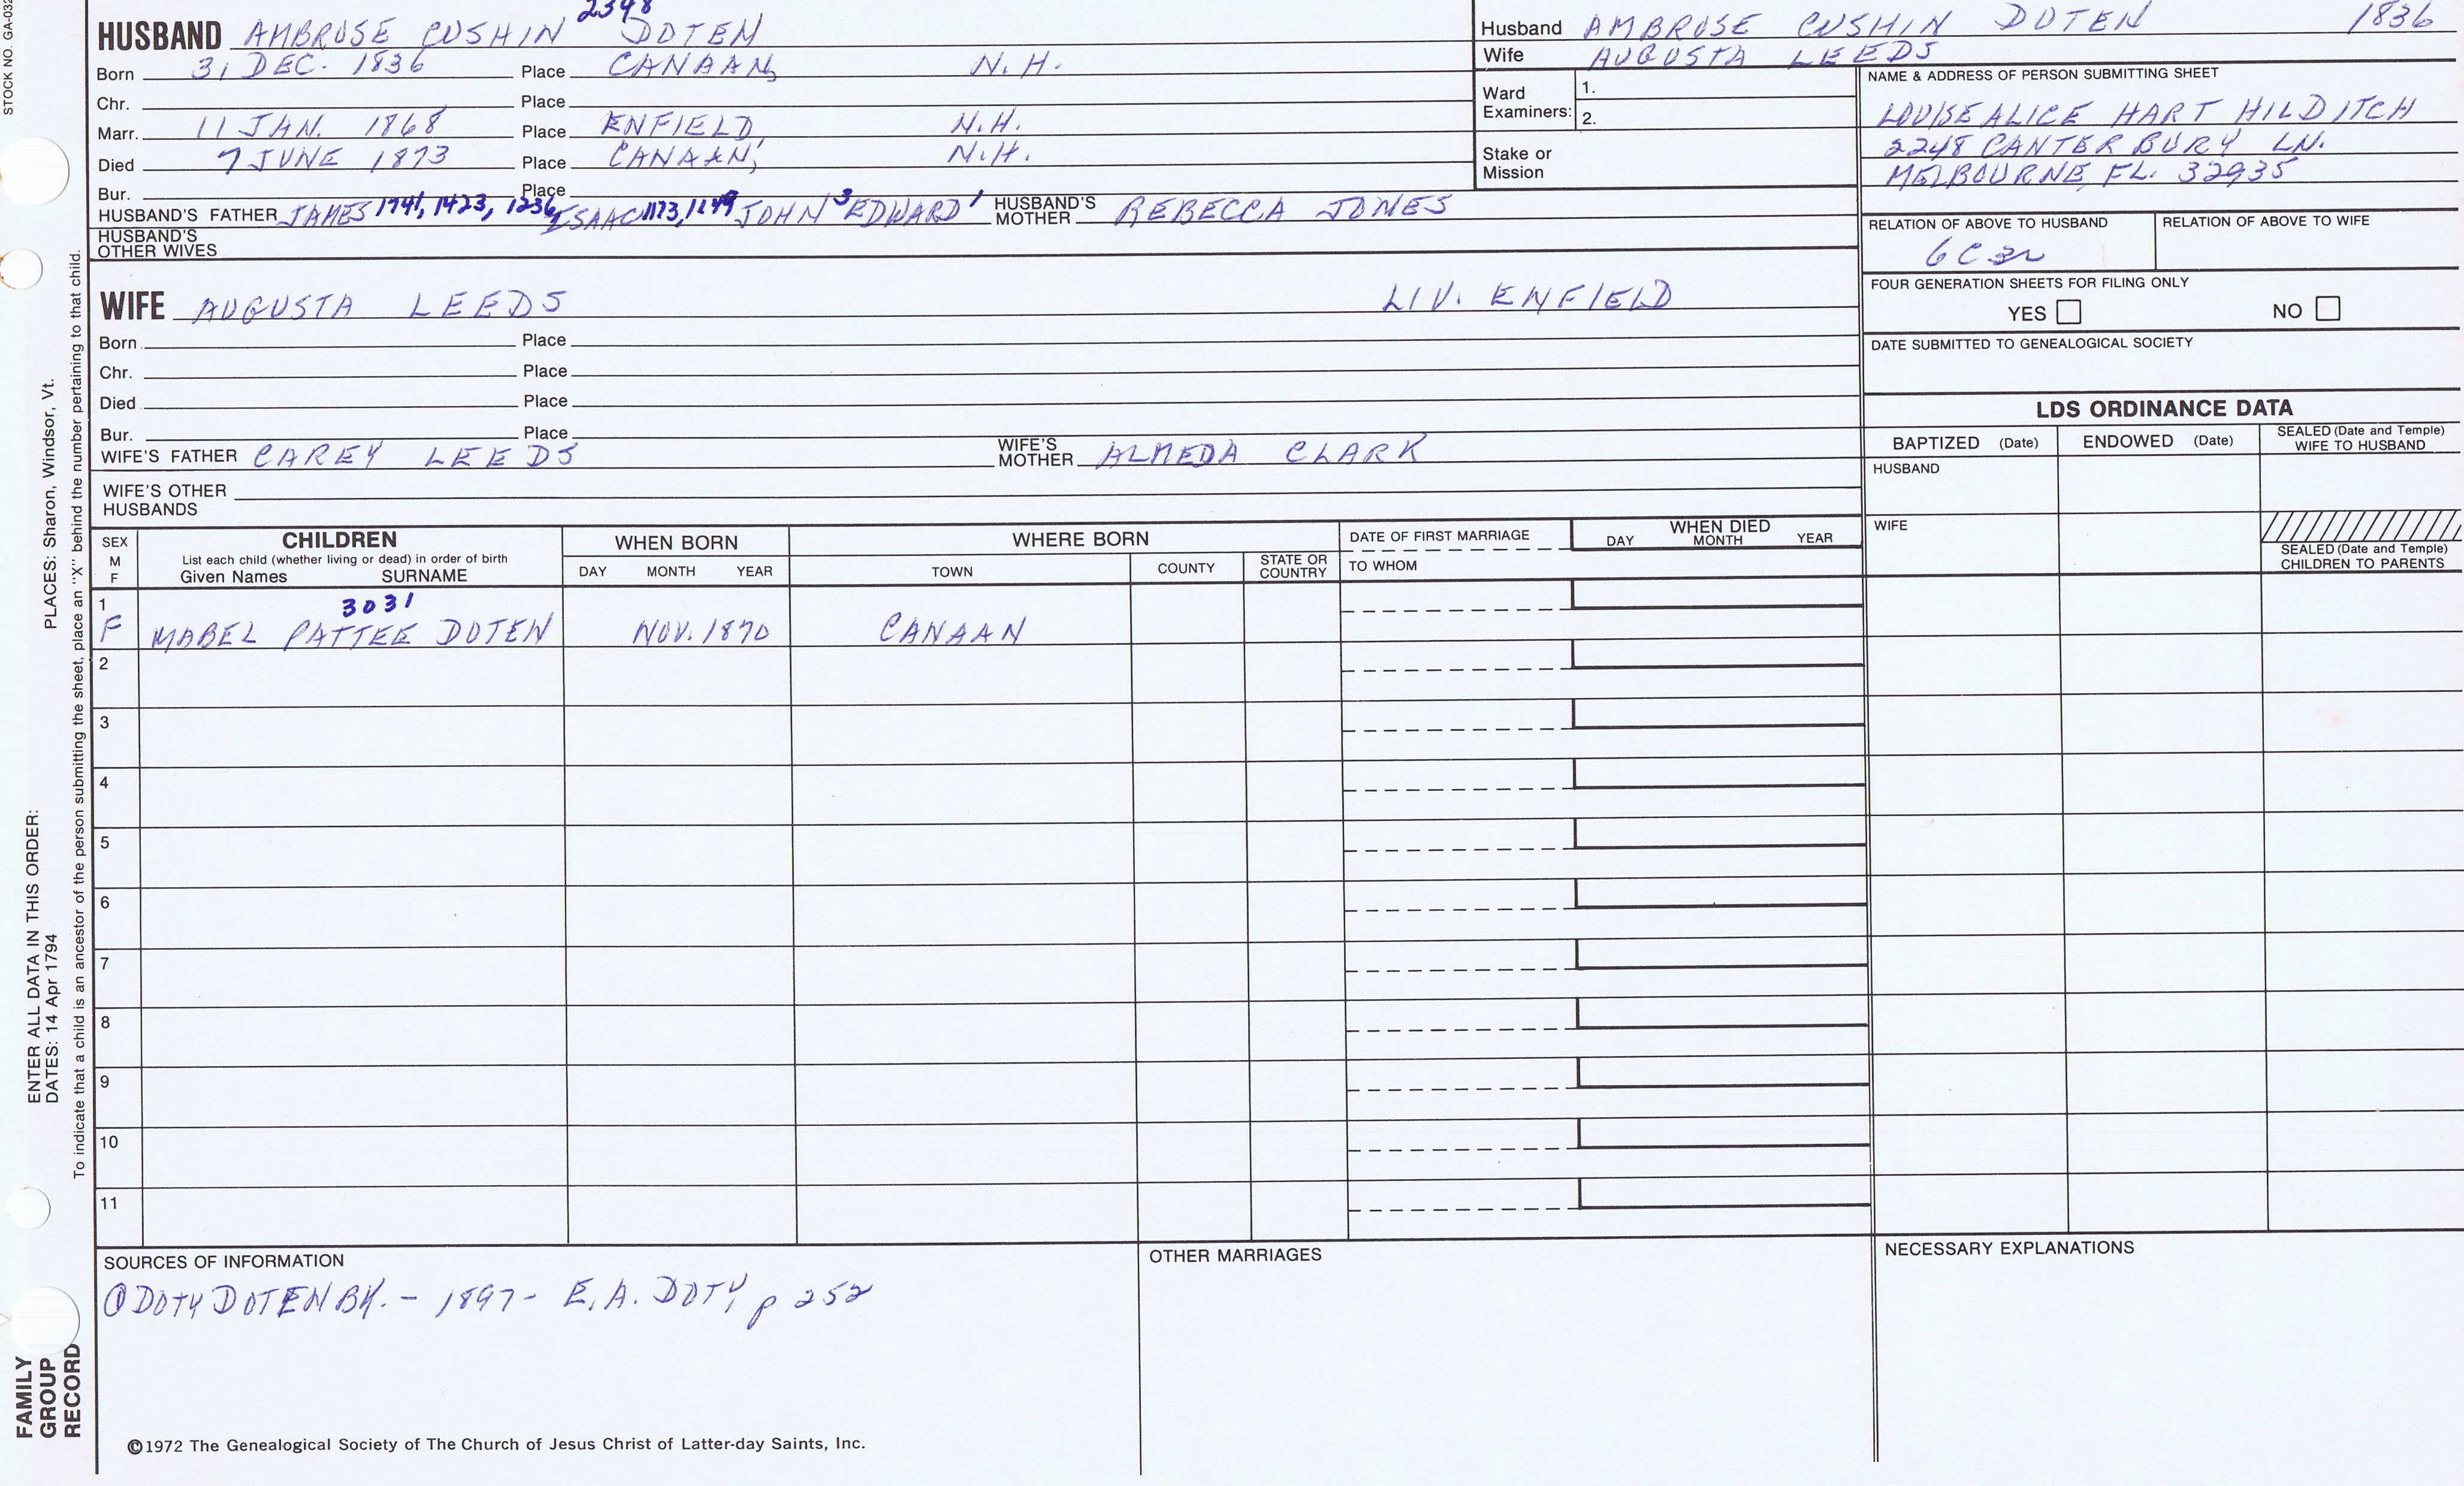 STOCK NO. GA-032
2348
HUSBAND AMBROSE CUSHIN DOTEN
Born 31 DEC. 1836 Place CANAAN, N.H.
Chr. Place
Marr. 11 JAN. 1868 Place ENFIELD, N.H.
Died 7 JUNE 1873 Place CANAAN, N.H.
Bur. Place
HUSBAND'S FATHER JAMES 1741, 1423, 1236, ISAAC 1173, 1149 JOHN 3 EDWARD 1 HUSBAND'S MOTHER REBECCA JONES
HUSBAND'S OTHER WIVES
WIFE AUGUSTA LEEDS LIV. ENFIELD
Born Place
Chr. Place
Died Place
Bur. Place
WIFE'S FATHER CAREY LEEDS WIFE'S MOTHER ALMEDA CLARK
WIFE'S OTHER HUSBANDS
Husband AMBROSE CUSHIN DOTEN 1836
Wife AUGUSTA LEEDS
Ward Examiners: 1.
2.
Stake or Mission
NAME & ADDRESS OF PERSON SUBMITTING SHEET
LOUISE ALICE HART HILDITCH
2248 CANTERBURY LN.
MELBOURNE, FL. 32935
RELATION OF ABOVE TO HUSBAND RELATION OF ABOVE TO WIFE
6C 3r
FOUR GENERATION SHEETS FOR FILING ONLY
YES NO
DATE SUBMITTED TO GENEALOGICAL SOCIETY
LDS ORDINANCE DATA
BAPTIZED (Date) ENDOWED (Date) SEALED (Date and Temple) WIFE TO HUSBAND
HUSBAND
WIFE
SEALED (Date and Temple) CHILDREN TO PARENTS
SEX M F
CHILDREN
List each child (whether living or dead) in order of birth
Given Names SURNAME
WHEN BORN
DAY MONTH YEAR
WHERE BORN
TOWN COUNTY STATE OR COUNTRY
DATE OF FIRST MARRIAGE
TO WHOM
WHEN DIED
DAY MONTH YEAR
1 3031
F MABEL PATTEE DOTEN NOV. 1870 CANAAN
2
3
4
5
6
7
8
9
10
11
SOURCES OF INFORMATION
① DOTY DOTEN BK. - 1897 - E. A. DOTY, p 252
OTHER MARRIAGES
NECESSARY EXPLANATIONS
©1972 The Genealogical Society of The Church of Jesus Christ of Latter-day Saints, Inc.
FAMILY
GROUP
RECORD
ENTER ALL DATA IN THIS ORDER:
DATES: 14 Apr 1794 PLACES: Sharon, Windsor, Vt.
To indicate that a child is an ancestor of the person submitting the sheet, place an "X" behind the number pertaining to that child.